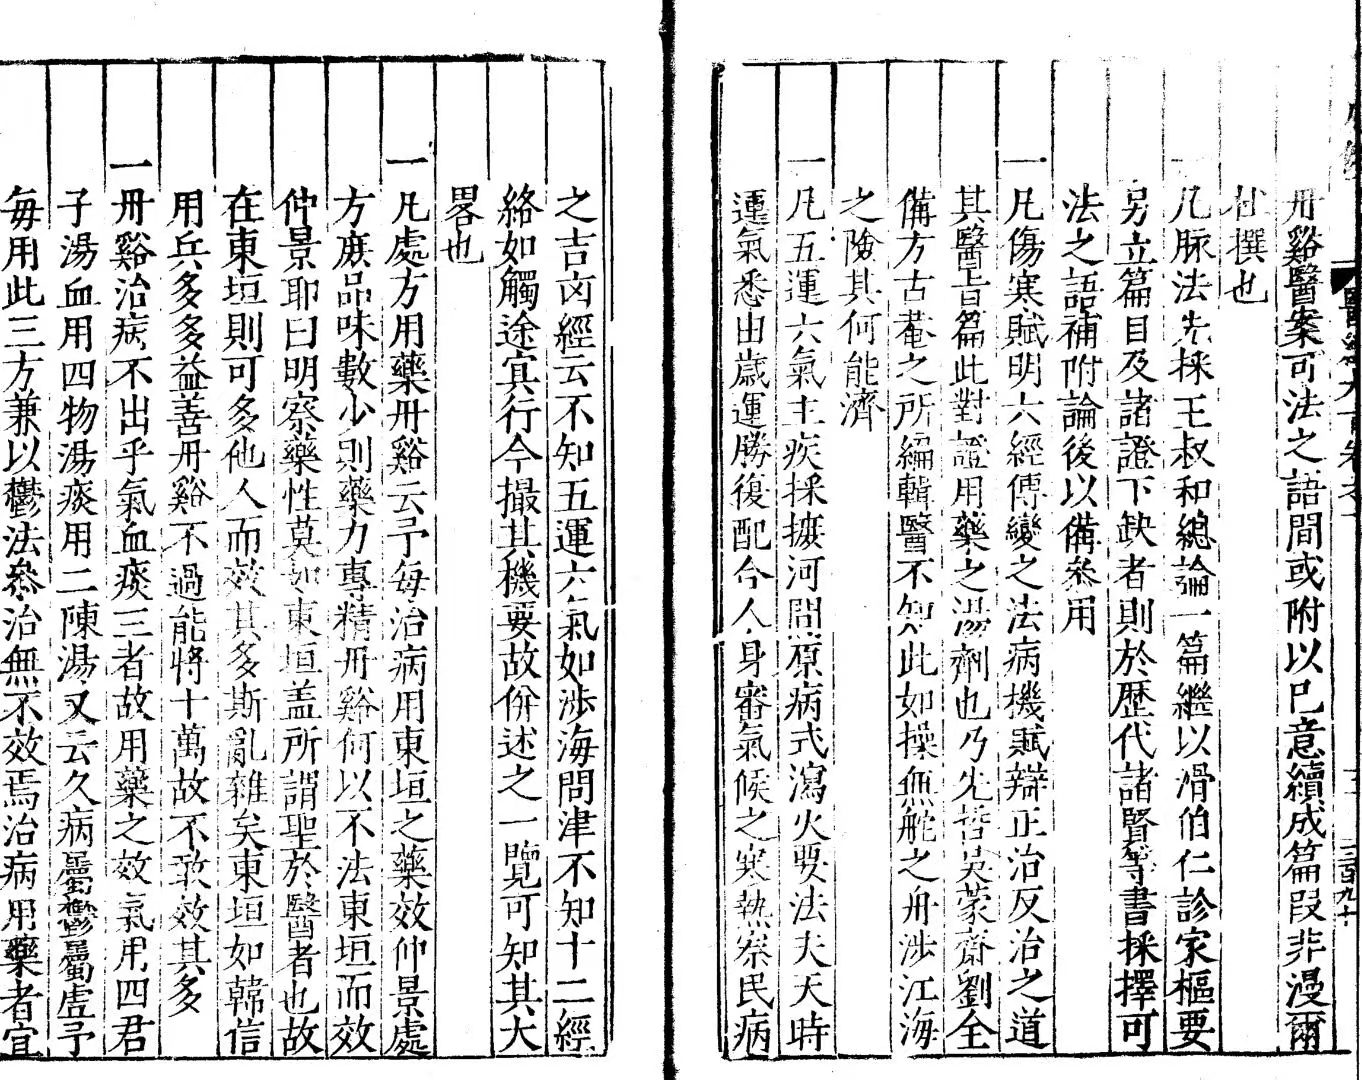 丹谿醫案可法之語間或附以己意續成篇段非漫爾
杜撰也
一凡脉法先採王叔和總論一篇繼以滑伯仁診家樞要
另立篇目及諸證下缺者則於歷代諸賢等書採擇可
法之語補附論後以俻叅用
一凡傷寒賦明六經傳變之法病機賦辯正治反治之道
其醫旨篇此對證用藥之湯劑也乃先哲吳蒙齋劉全
俻方古菴之所編輯醫不知此如操無舵之舟涉江海
之險其何能濟
一凡五運六氣主疾採摭河間原病式瀉火要法夫天時
運氣悉由歲運勝復配合人身審氣候之寒熱察民病
之吉凶經云不知五運六氣如涉海問津不知十二經
絡如觸途冥行今撮其機要故併述之一覽可知其大
畧也
一凡處方用藥丹谿云予每治病用東垣之藥效仲景處
方庻品味數少則藥力專精丹谿何以不法東垣而效
仲景耶曰明察藥性莫如東垣盖所謂聖於醫者也故
在東垣則可多他人而效其多斯亂雜矣東垣如韓信
用兵多多益善丹谿不過能將十萬故不敢效其多
一丹谿治病不出乎氣血痰三者故用藥之效氣用四君
子湯血用四物湯痰用二陳湯又云久病屬鬱屬虛予
每用此三方兼以鬱法叅治無不效焉治病用藥者宜